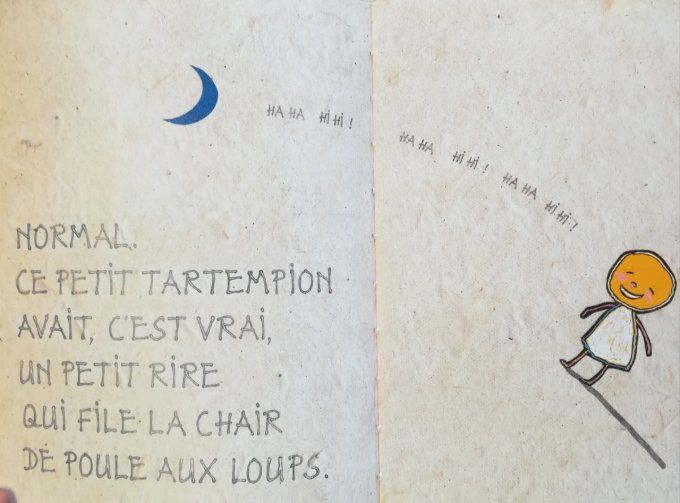 HA HA HiHi !
HA HA HiHi ! HA HA HiHi !
NORMAL.
CE PETIT TARTEMPION
AVAIT, C'EST VRAI,
UN PETIT RIRE
QUI FILE LA CHAIR
DE POULE AUX LOUPS.